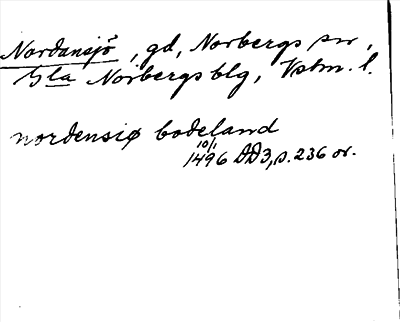 Nordansjö, gd, Norbergs sn,
Gla Norbergs blg, Vstm. l.
nordensiø bodeland
10/1
1496 DD3, s. 236 or.